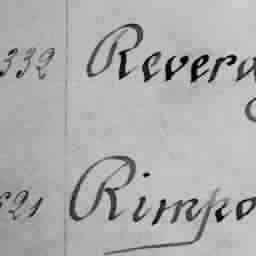 332 Reverd
521 Rimpo